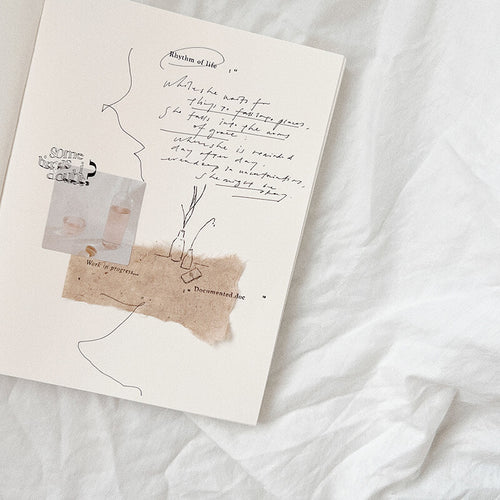 Rhythm of life
While she waits for
things to fall into place,
She falls into the arms
of grace.
Where she is reminded
day after day.
wandering in uncertainties,
She might be
some
Work in progress...
Documented.doc